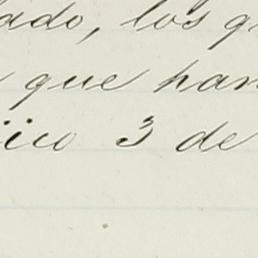 ado, los q
que han
ico 3 de